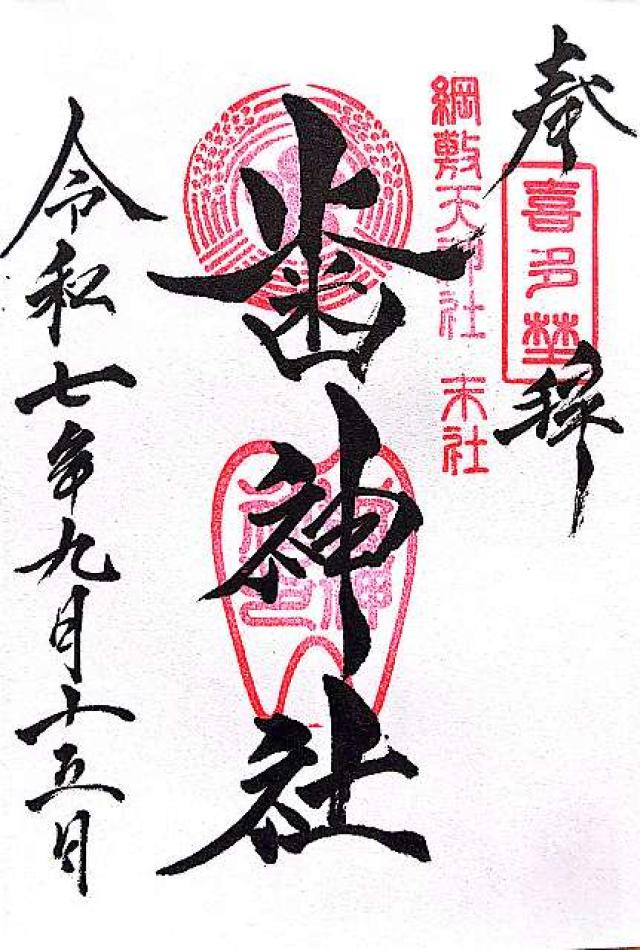 奉拝
喜多埜
綱敷天神社 末社
歯神社
歯神社
令和七年九月十五日